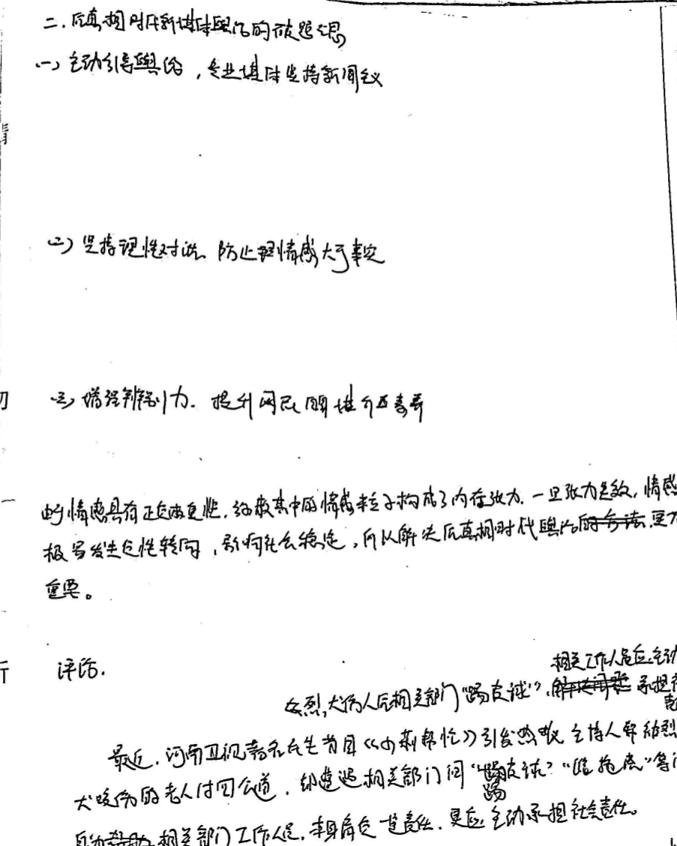 二、后真相时代新媒体舆论的破题之思
(一) 主动引导舆论，专业媒体坚持新闻主义
(二) 坚持理性对话、防止情感大于事实
(三) 增强辨别力、提升网民媒介素养
的情感具有正负两重性，给故事中的情感粒子构成了内在张力，一旦张力失效，情感
极易发生负性转向，影响社会稳定，所以解决后真相时代舆论更为
重要。
评论.
相关工作人员应主动
烈犬伤人后相关部门“踢皮球”，承担
最近，河南卫视著名民生节目《小莉帮忙》引发热议 主持人帮被烈
犬咬伤的老人讨回公道，却遭遇相关部门间“踢皮球”“推拖庞”等
相关部门工作人员，本身肩负一定责任，更应主动承担社会责任。